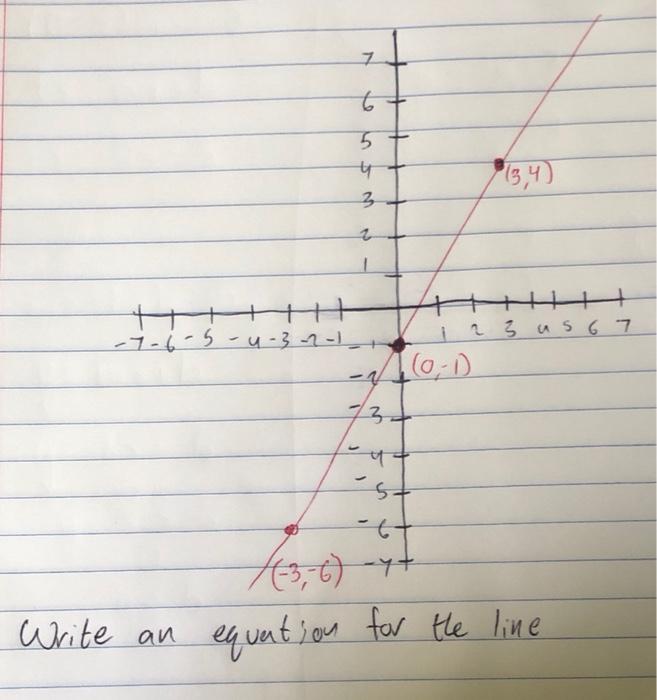 7
6
5
4
(3,4)
3
2
1
-7 -6 -5 -4 -3 -2 -1
1 2 3 4 5 6 7
-1
(0,-1)
-2
-3
-4
-5
-6
(-3,-6)
-7
Write an equation for the line